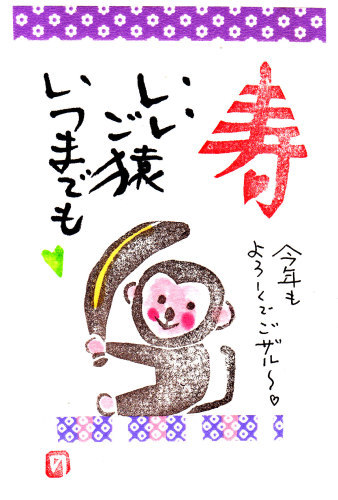 寿
いい
ご猿
いつまでも
今年も
よろしくでござル〜♡